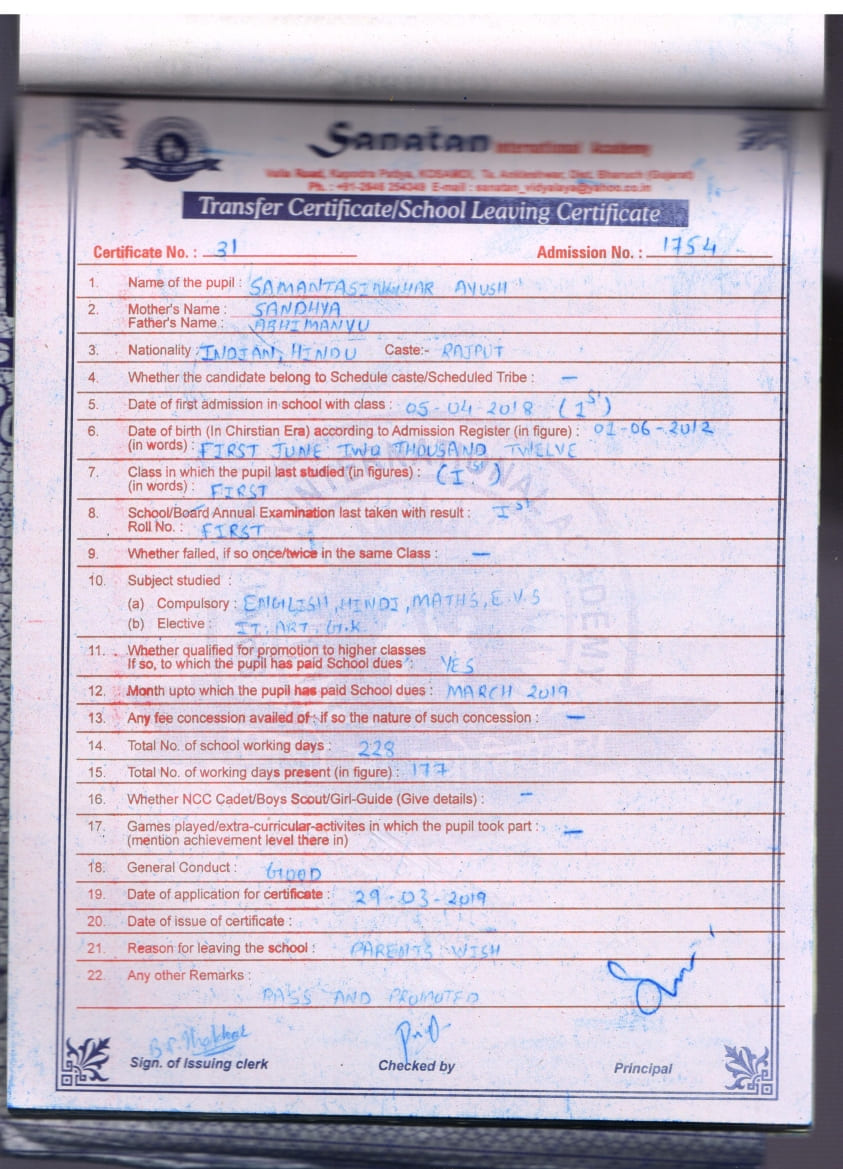 Sanatan International Academy
Valia Road, Kapodra Patiya, KOSAMDI, Ta. Ankleshwar, Dist. Bharuch (Gujarat)
Ph. : +91-2646 254349 E-mail : sanatan_vidyalaya@yahoo.co.in
Transfer Certificate/School Leaving Certificate
Certificate No. : 31 Admission No. : 1754
1. Name of the pupil : SAMANTASINGHAR AYUSH
2. Mother's Name : SANDHYA
Father's Name : ABHIMANYU
3. Nationality : INDIAN, HINDU Caste:- RAJPUT
4. Whether the candidate belong to Schedule caste/Scheduled Tribe : —
5. Date of first admission in school with class : 05-04-2018 (1st)
6. Date of birth (In Chirstian Era) according to Admission Register (in figure) : 01-06-2012
(in words) : FIRST JUNE TWO THOUSAND TWELVE
7. Class in which the pupil last studied (in figures) : (I)
(in words) : FIRST
8. School/Board Annual Examination last taken with result : Ist
Roll No. : FIRST
9. Whether failed, if so once/twice in the same Class : —
10. Subject studied :
(a) Compulsory : ENGLISH, HINDI, MATHS, E.V.S
(b) Elective : IT, ART, G.K
11. Whether qualified for promotion to higher classes
If so, to which the pupil has paid School dues : YES
12. Month upto which the pupil has paid School dues : MARCH 2019
13. Any fee concession availed of : if so the nature of such concession : —
14. Total No. of school working days : 228
15. Total No. of working days present (in figure) : 177
16. Whether NCC Cadet/Boys Scout/Girl-Guide (Give details) : —
17. Games played/extra-curricular-activites in which the pupil took part : —
(mention achievement level there in)
18. General Conduct : GOOD
19. Date of application for certificate : 29-03-2019
20. Date of issue of certificate :
21. Reason for leaving the school : PARENTS WISH
22. Any other Remarks :
PASS AND PROMOTED
Sign. of Issuing clerk Checked by Principal